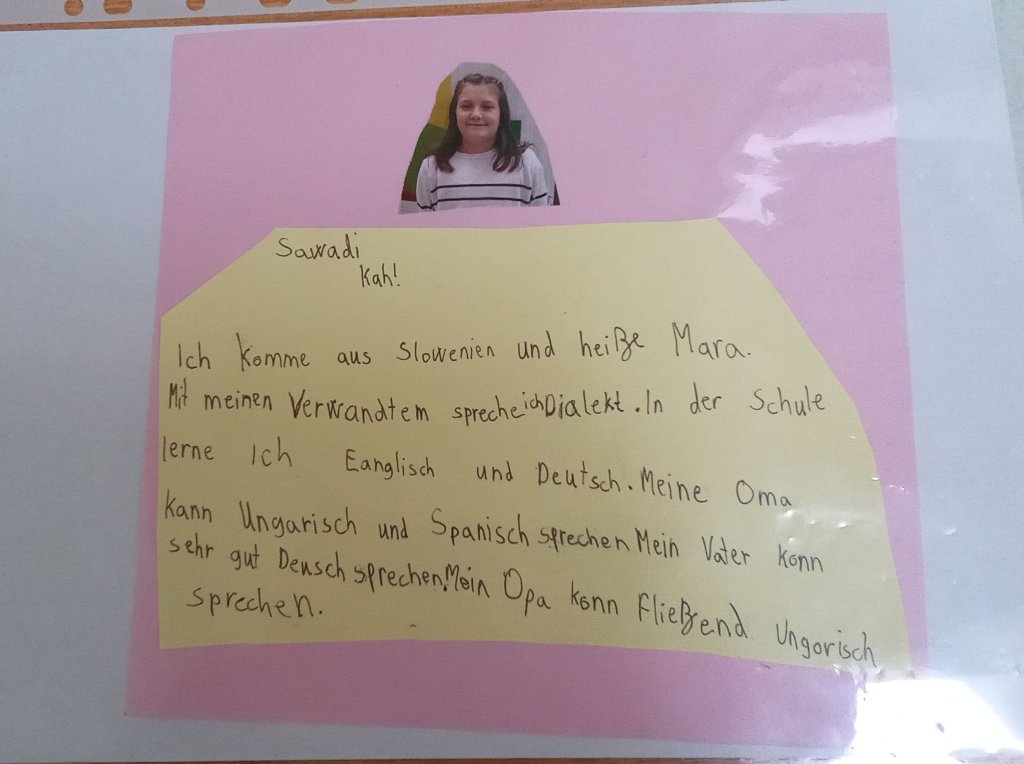 Sawadi
Kah!
Ich komme aus Slowenien und heiße Mara.
Mit meinen Verwandtem spreche ich Dialekt. In der Schule
lerne Ich Eanglisch und Deutsch. Meine Oma
kann Ungarisch und Spanisch sprechen Mein Vater konn
sehr gut Deusch sprechen. Mein Opa konn fließend Ungorisch
sprechen.